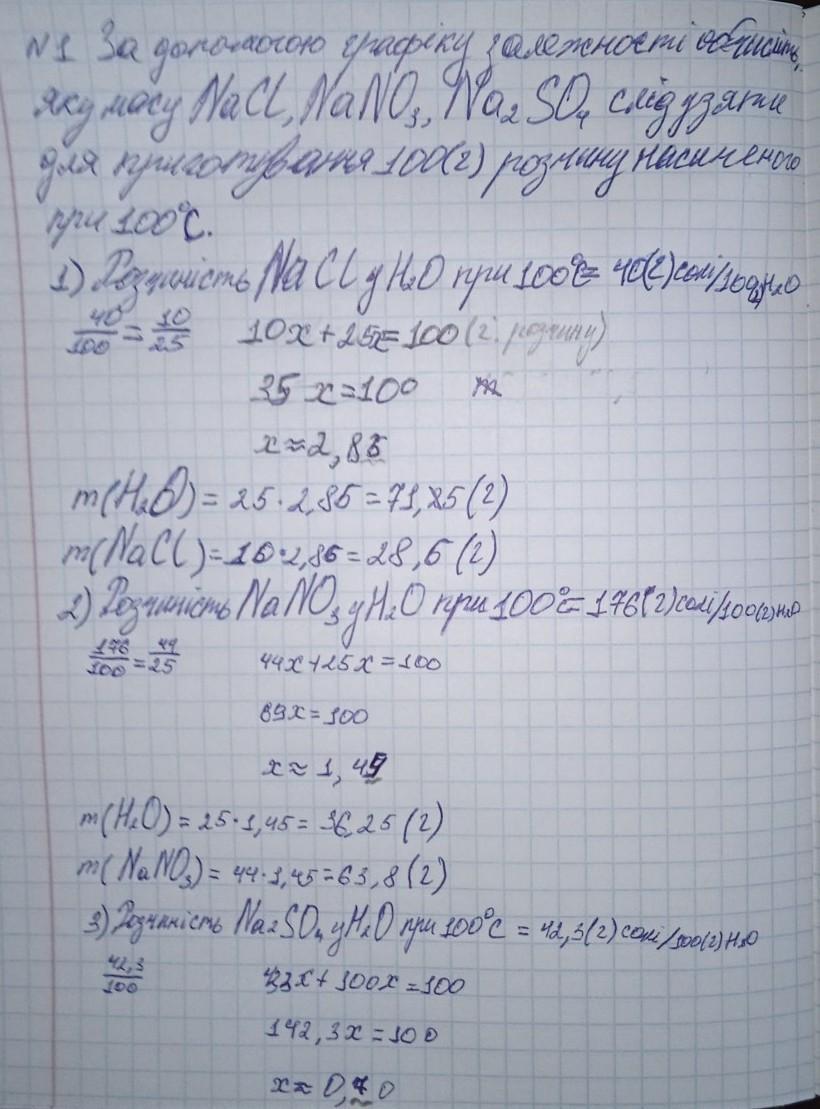 N1 За допомогою графіку залежності обчисліть,
яку масу NaCl, NaNO₃, Na₂SO₄ слід узяти
для приготування 100(г) розчину насиченого
при 100°C.
1) Розчиність NaCl у H₂O при 100°C = 40(г)солі/100(г)H₂O
40/100 = 10/25 10x+25x=100 (г. розчину)
35x=100
x≈2,85
m(H₂O) = 25·2,85=71,25(г)
m(NaCl)=10·2,86=28,6(г)
2) Розчиність NaNO₃ у H₂O при 100°C = 176(г)солі/100(г)H₂O
176/100 = 44/25 44x+25x=100
69x=100
x≈1,45
m(H₂O) = 25·1,45= 36,25(г)
m(NaNO₃)= 44·1,45=63,8(г)
3) Розчиність Na₂SO₄ у H₂O при 100°C = 42,3(г)солі/100(г)H₂O
42,3/100 x+100x=100
142,3x=100
x≈0,70